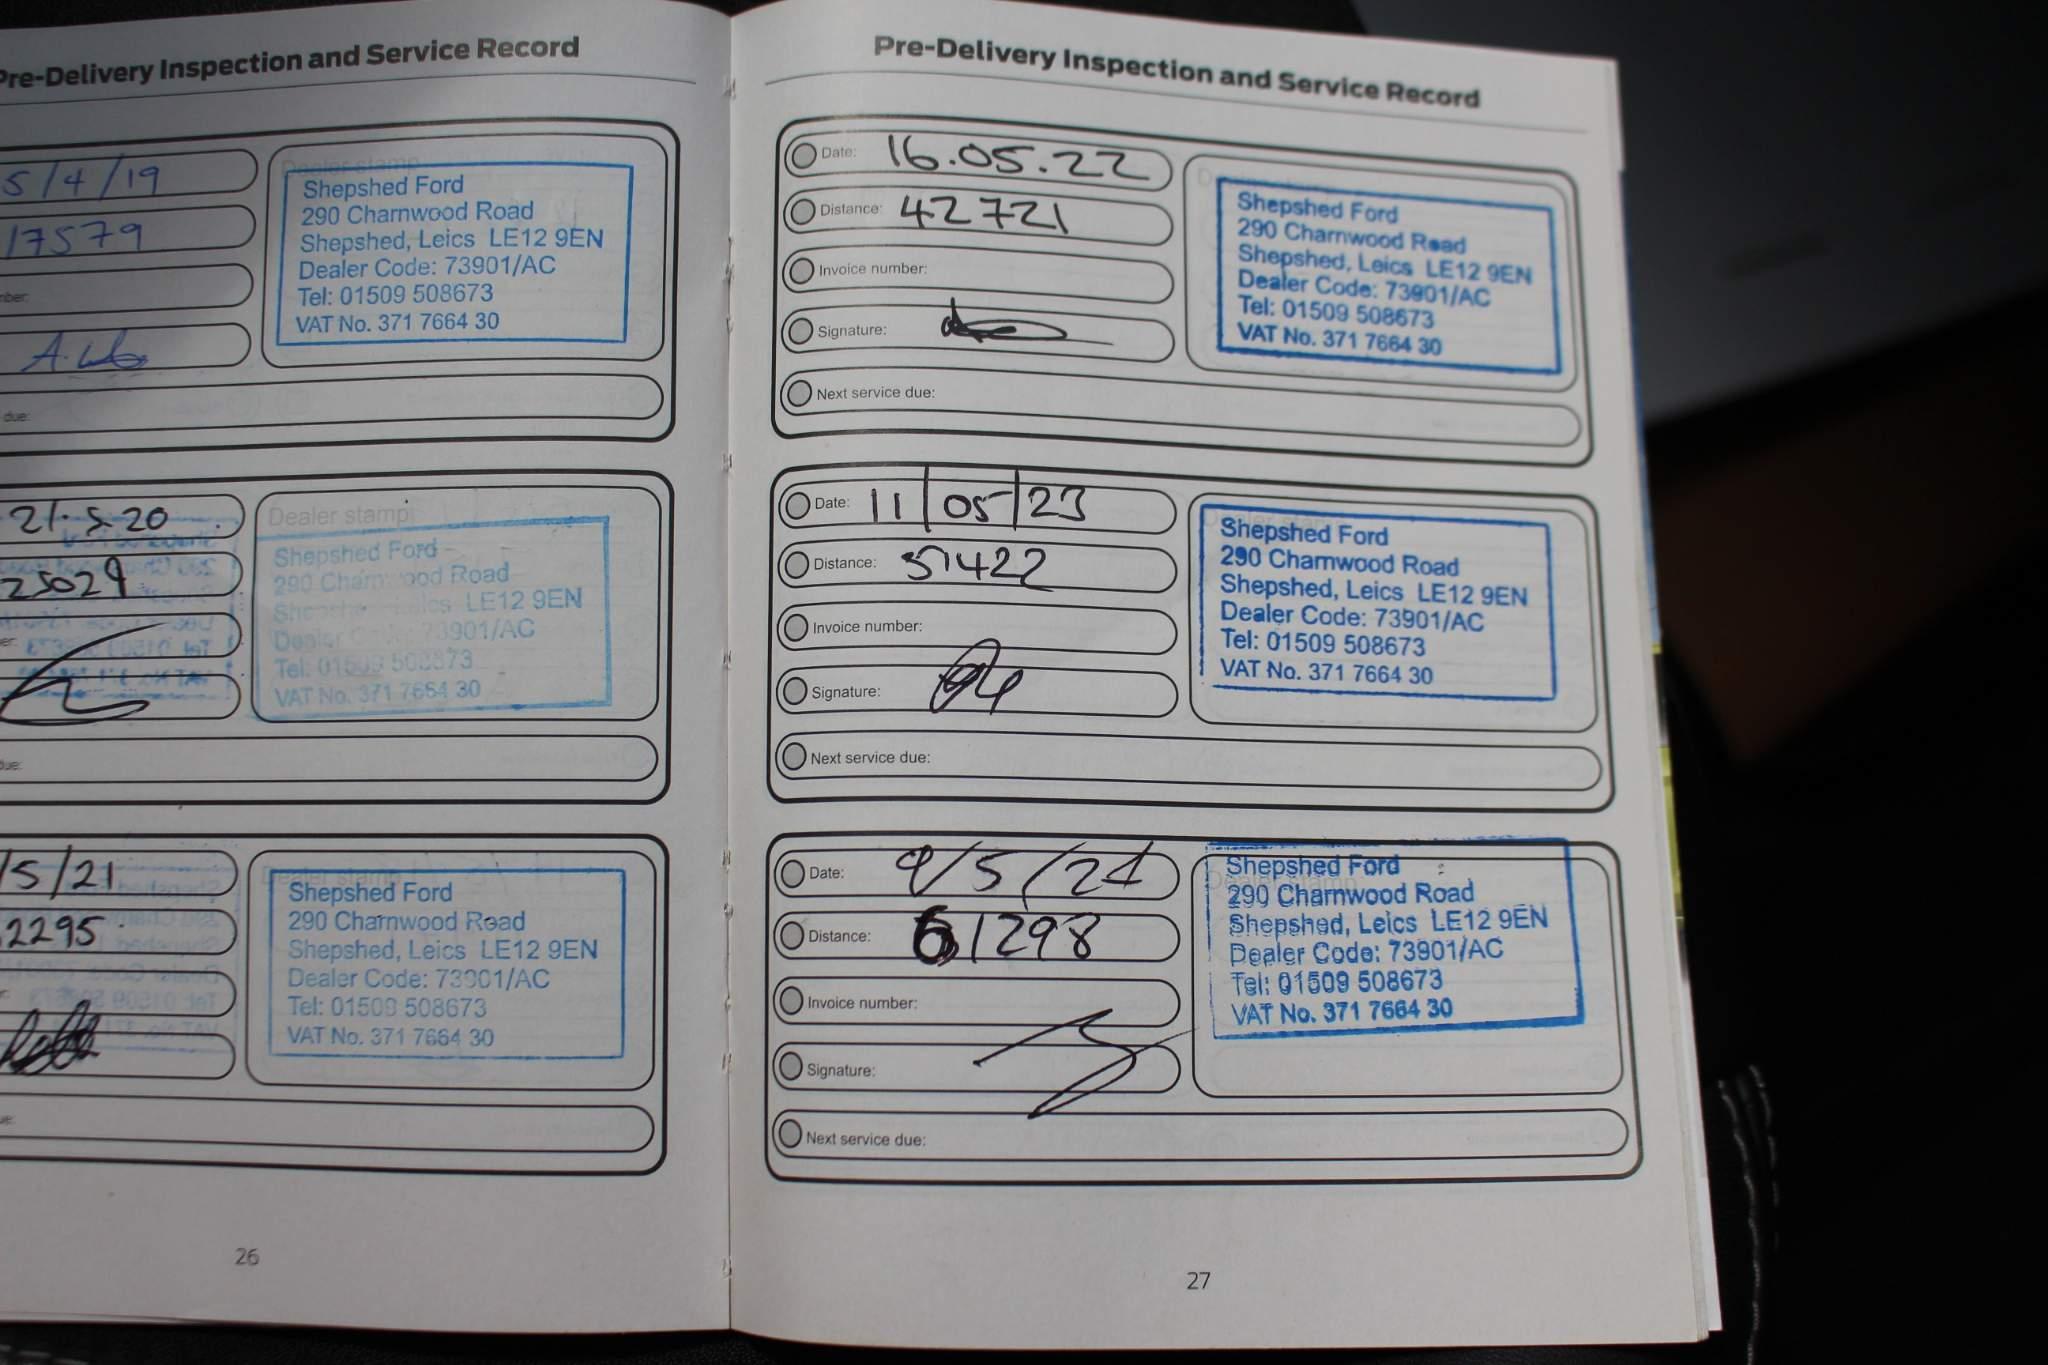 Pre-Delivery Inspection and Service Record
5/4/19
17579
Dealer stamp
Shepshed Ford
290 Charnwood Road
Shepshed, Leics LE12 9EN
Dealer Code: 73901/AC
Tel: 01509 508673
VAT No. 371 7664 30
due:
21.5.20
25029
Dealer stamp
Shepshed Ford
290 Charnwood Road
Shepshed, Leics LE12 9EN
Dealer Code: 73901/AC
Tel: 01509 508673
VAT No. 371 7664 30
due:
/5/21
2295
Dealer stamp
Shepshed Ford
290 Charnwood Road
Shepshed, Leics LE12 9EN
Dealer Code: 73901/AC
Tel: 01509 508673
VAT No. 371 7664 30
26
Pre-Delivery Inspection and Service Record
Date: 16.05.22
Distance: 42721
Invoice number:
Signature:
Next service due:
Shepshed Ford
290 Charnwood Road
Shepshed, Leics LE12 9EN
Dealer Code: 73901/AC
Tel: 01509 508673
VAT No. 371 7664 30
Date: 11/05/23
Distance: 51422
Invoice number:
Signature:
Next service due:
Shepshed Ford
290 Charnwood Road
Shepshed, Leics LE12 9EN
Dealer Code: 73901/AC
Tel: 01509 508673
VAT No. 371 7664 30
Date: 9/5/24
Distance: 61298
Invoice number:
Signature:
Next service due:
Shepshed Ford
290 Charnwood Road
Shepshed, Leics LE12 9EN
Dealer Code: 73901/AC
Tel: 01509 508673
VAT No. 371 7664 30
27